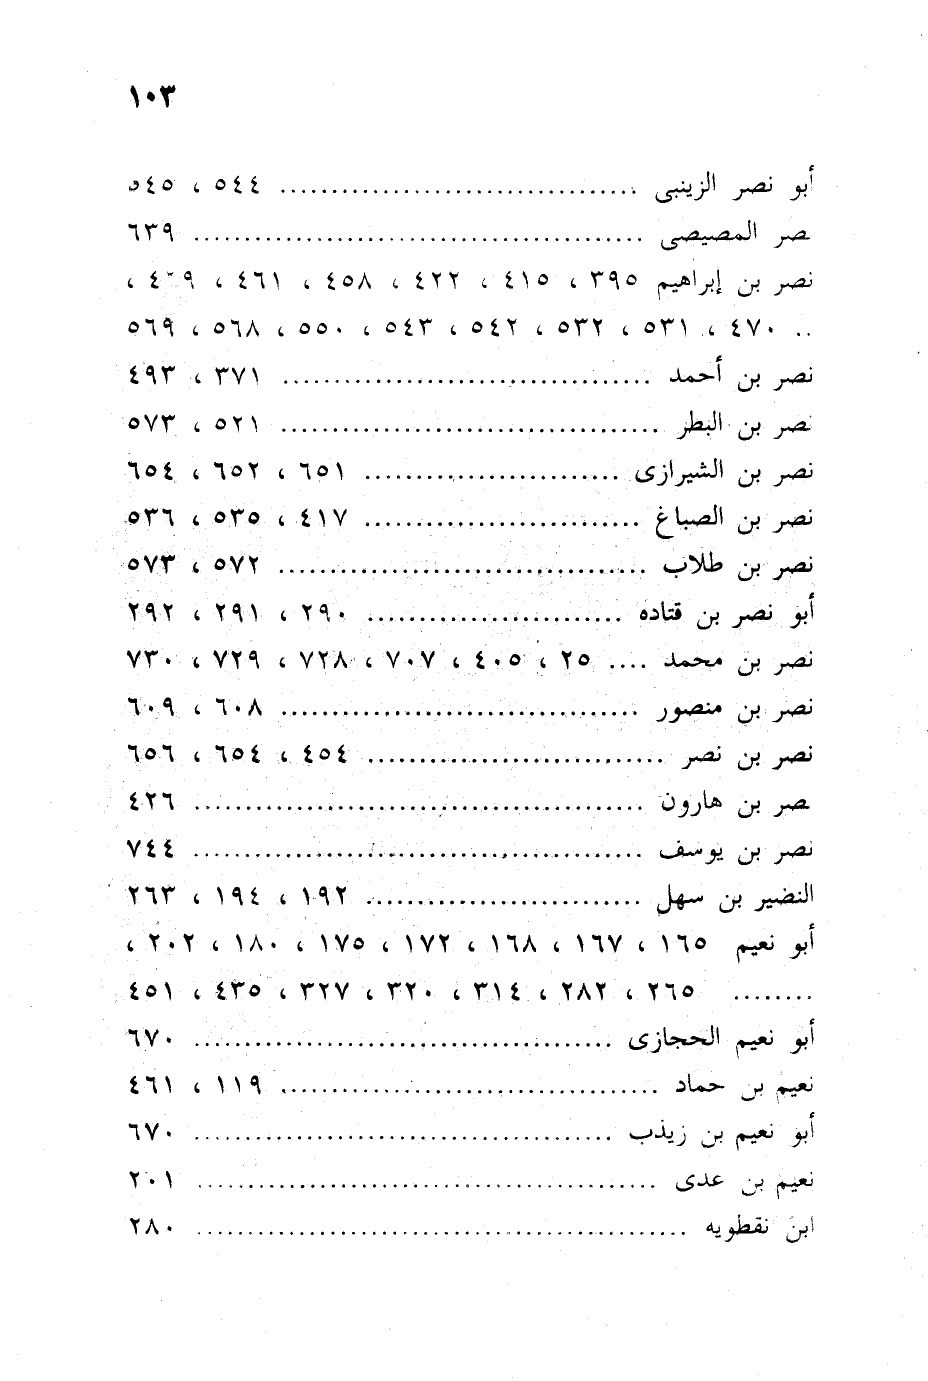 ١٠٣
أبو نصر الزينبى .................................. ٥٤٤ ، ٥٤٥
نصر المصيصى ............................................ ٦٣٩
نصر بن إبراهيم ٣٩٥ ، ٤١٥ ، ٤٢٢ ، ٤٥٨ ، ٤٦١ ، ،
.. ٤٧٠ ، ٥٣١ ، ٥٣٢ ، ٥٤٢ ، ٥٤٣ ، ٥٥٠ ، ٥٦٨ ، ٥٦٩
نصر بن أحمد .................................... ٣٧١ ، ٤٩٣
نصر بن البطر ..................................... ٥٢١ ، ٥٧٣
نصر بن الشيرازى ......................... ٦٥١ ، ٦٥٢ ، ٦٥٤
نصر بن الصباغ ........................... ٤١٧ ، ٥٣٥ ، ٥٣٦
نصر بن طلاب .................................... ٥٧٢ ، ٥٧٣
أبو نصر بن قتاده ......................... ٢٩٠ ، ٢٩١ ، ٢٩٢
نصر بن محمد .... ٢٥ ، ٤٠٥ ، ٧٠٧ ، ٧٢٨ ، ٧٢٩ ، ٧٣٠
نصر بن منصور ................................... ٦٠٨ ، ٦٠٩
نصر بن نصر ............................. ٤٥٤ ، ٦٥٤ ، ٦٥٦
نصر بن هارون ............................................ ٤٢٦
نصر بن يوسف ............................................ ٧٤٤
النضير بن سهل ........................... ١٩٢ ، ١٩٤ ، ٢٦٣
أبو نعيم ١٦٥ ، ١٦٧ ، ١٦٨ ، ١٧٢ ، ١٧٥ ، ١٨٠ ، ٢٠٢ ،
........ ٢٦٥ ، ٢٨٢ ، ٣١٤ ، ٣٢٠ ، ٣٢٧ ، ٤٣٥ ، ٤٥١
أبو نعيم الحجازى ......................................... ٦٧٠
نعيم بن حماد ..................................... ١١٩ ، ٤٦١
أبو نعيم بن زيذب ......................................... ٦٧٠
نعيم بن عدى ............................................. ٢٠١
ابن نقطويه ................................................ ٢٨٠